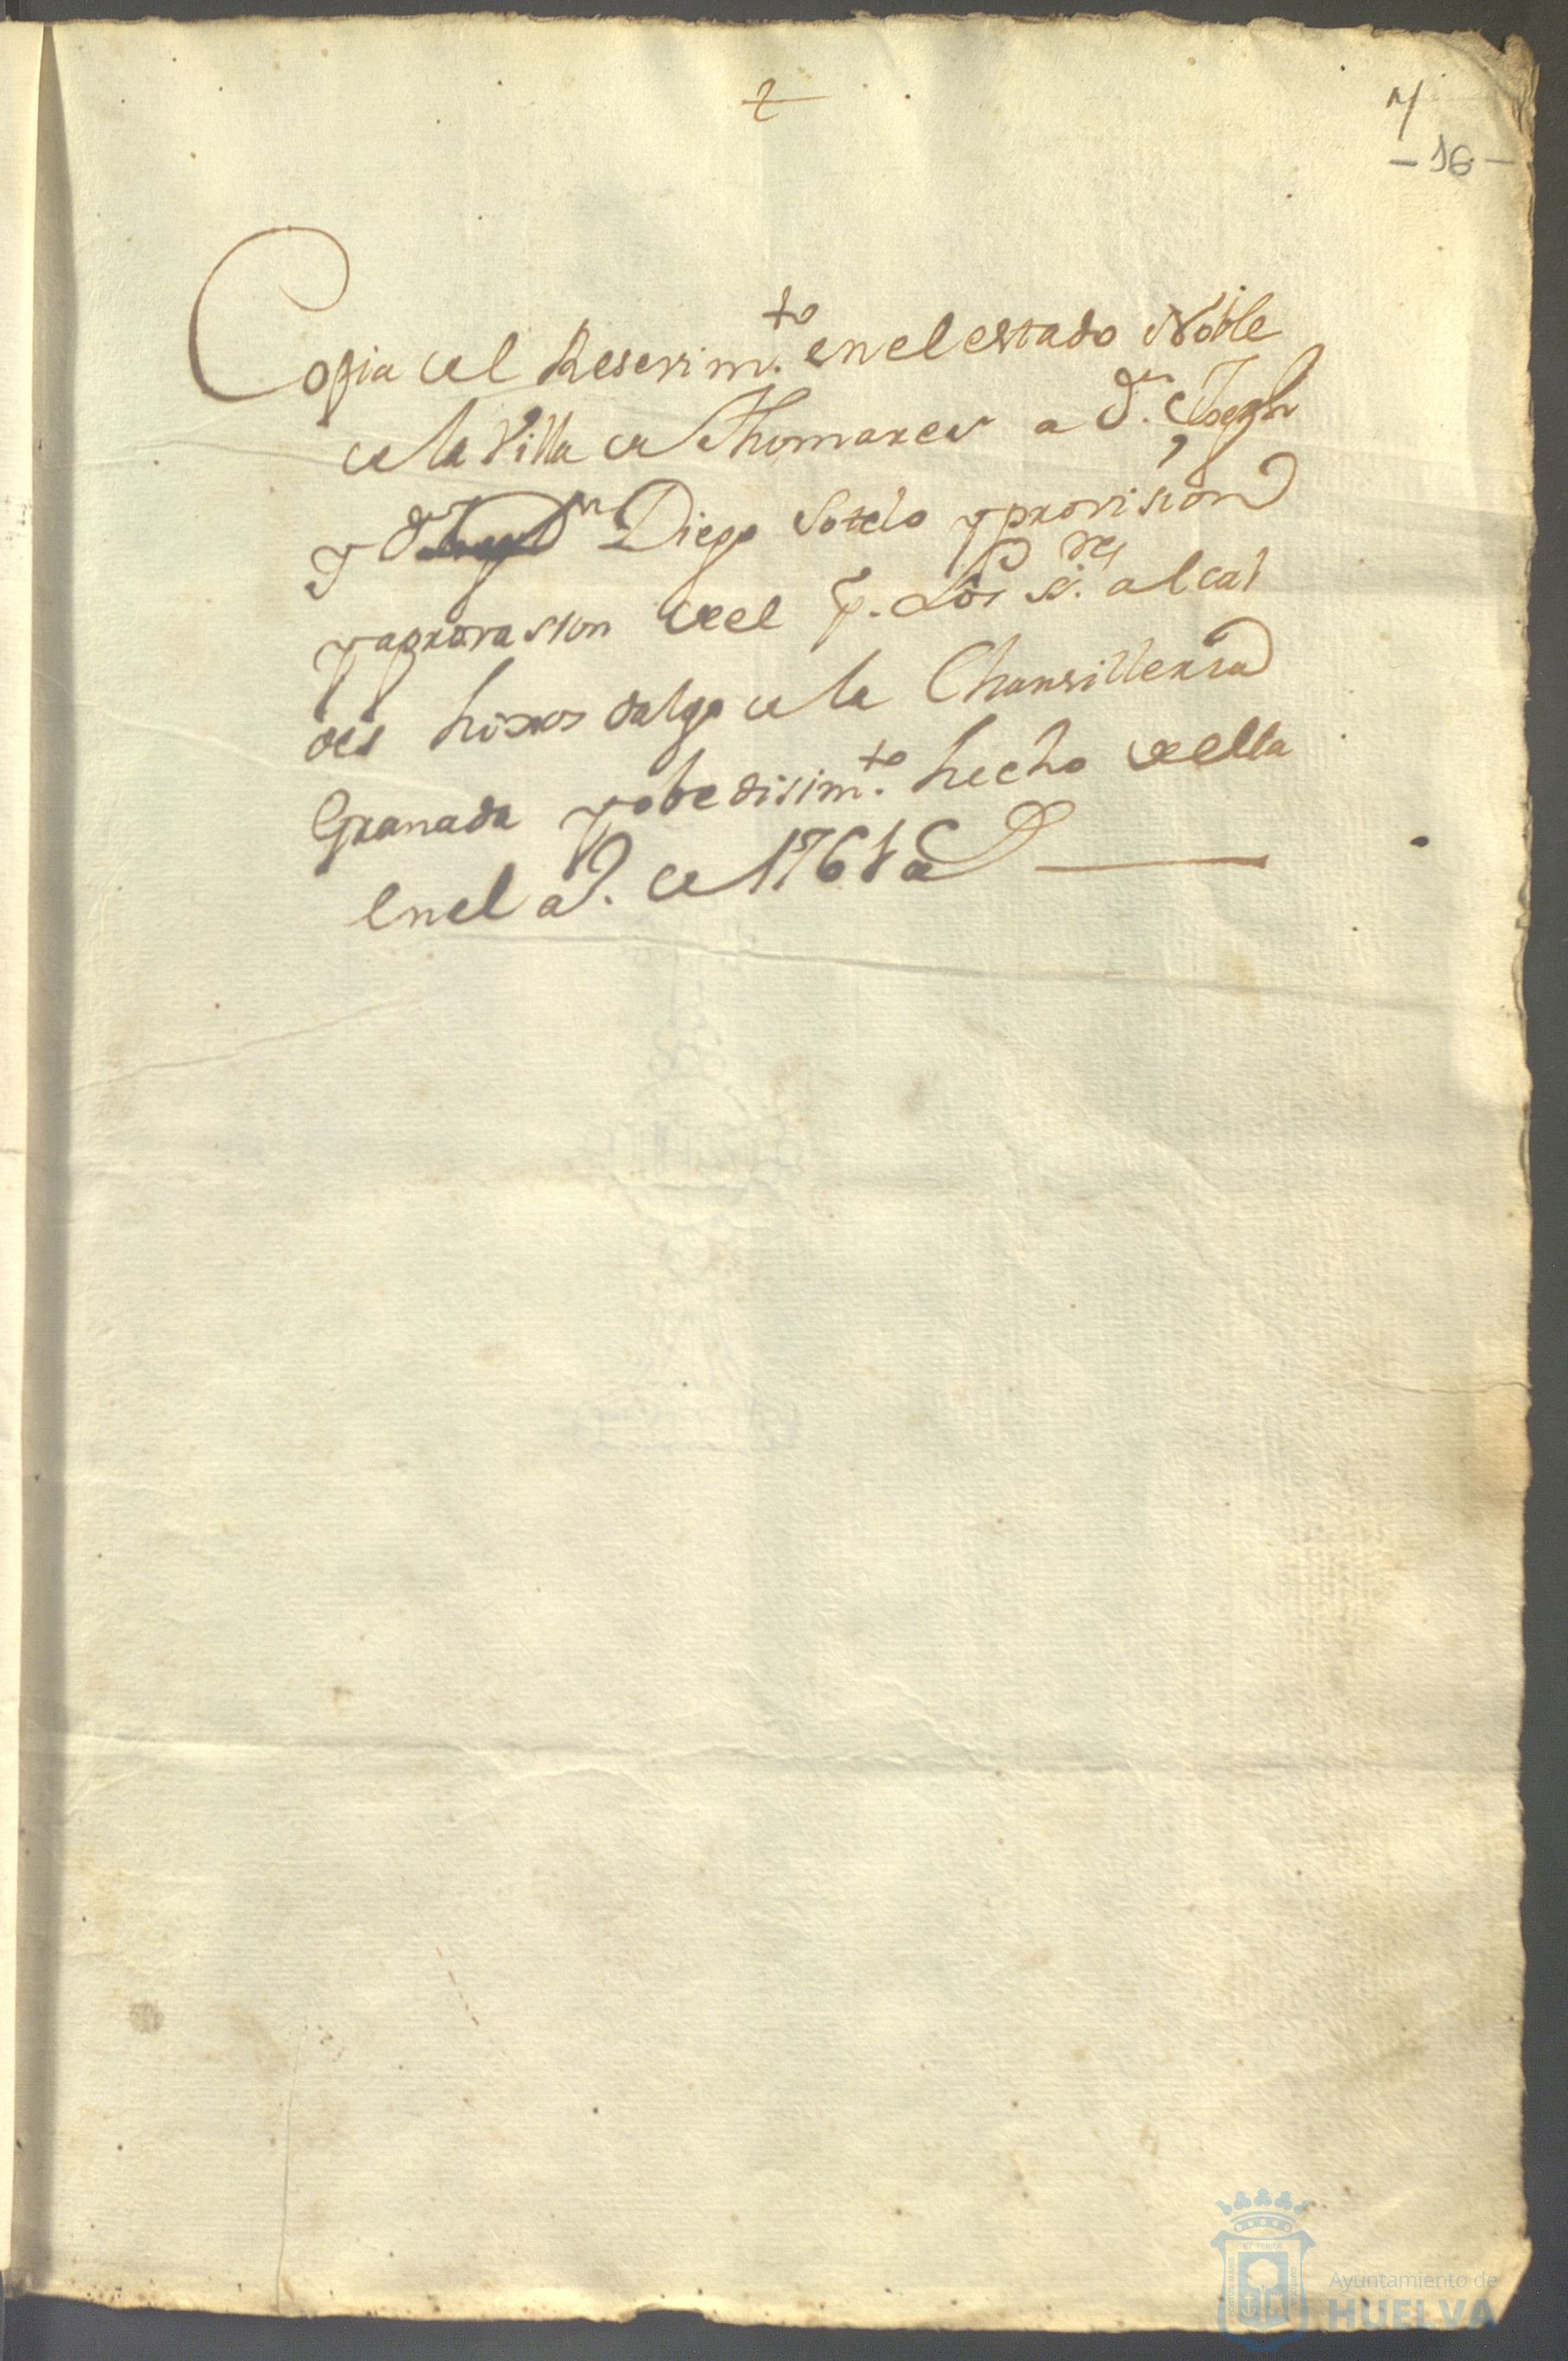 - 16 -
Copia del Resevim.to en el estado Noble
de la Villa de Thomares a d.n Joseph
y d.n Diego Sotelo y provision
y aprovasion del p. Los S.res alcal
des hixos dalgo de la Chansilleria
Granada y obedisim.to hecho della
en el a.
Ayuntamiento de
HUELVA